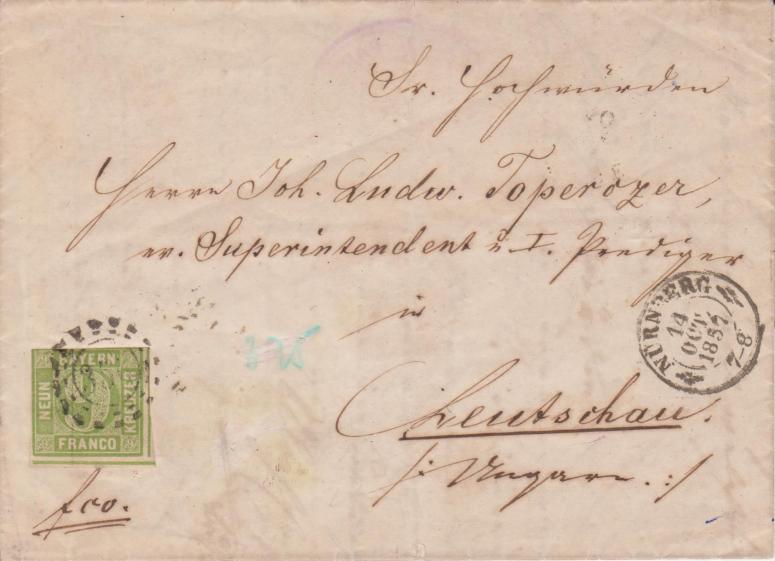 Sr. Hochwürden
Herrn Joh. Ludw. Toperczer,
ev. Superintendent u. I. Prediger
in
Leutschau.
/: Ungarn. :/
fco.
BAYERN
NEUN
KREUZER
FRANCO
NÜRNBERG
14
OCT
185
7-8